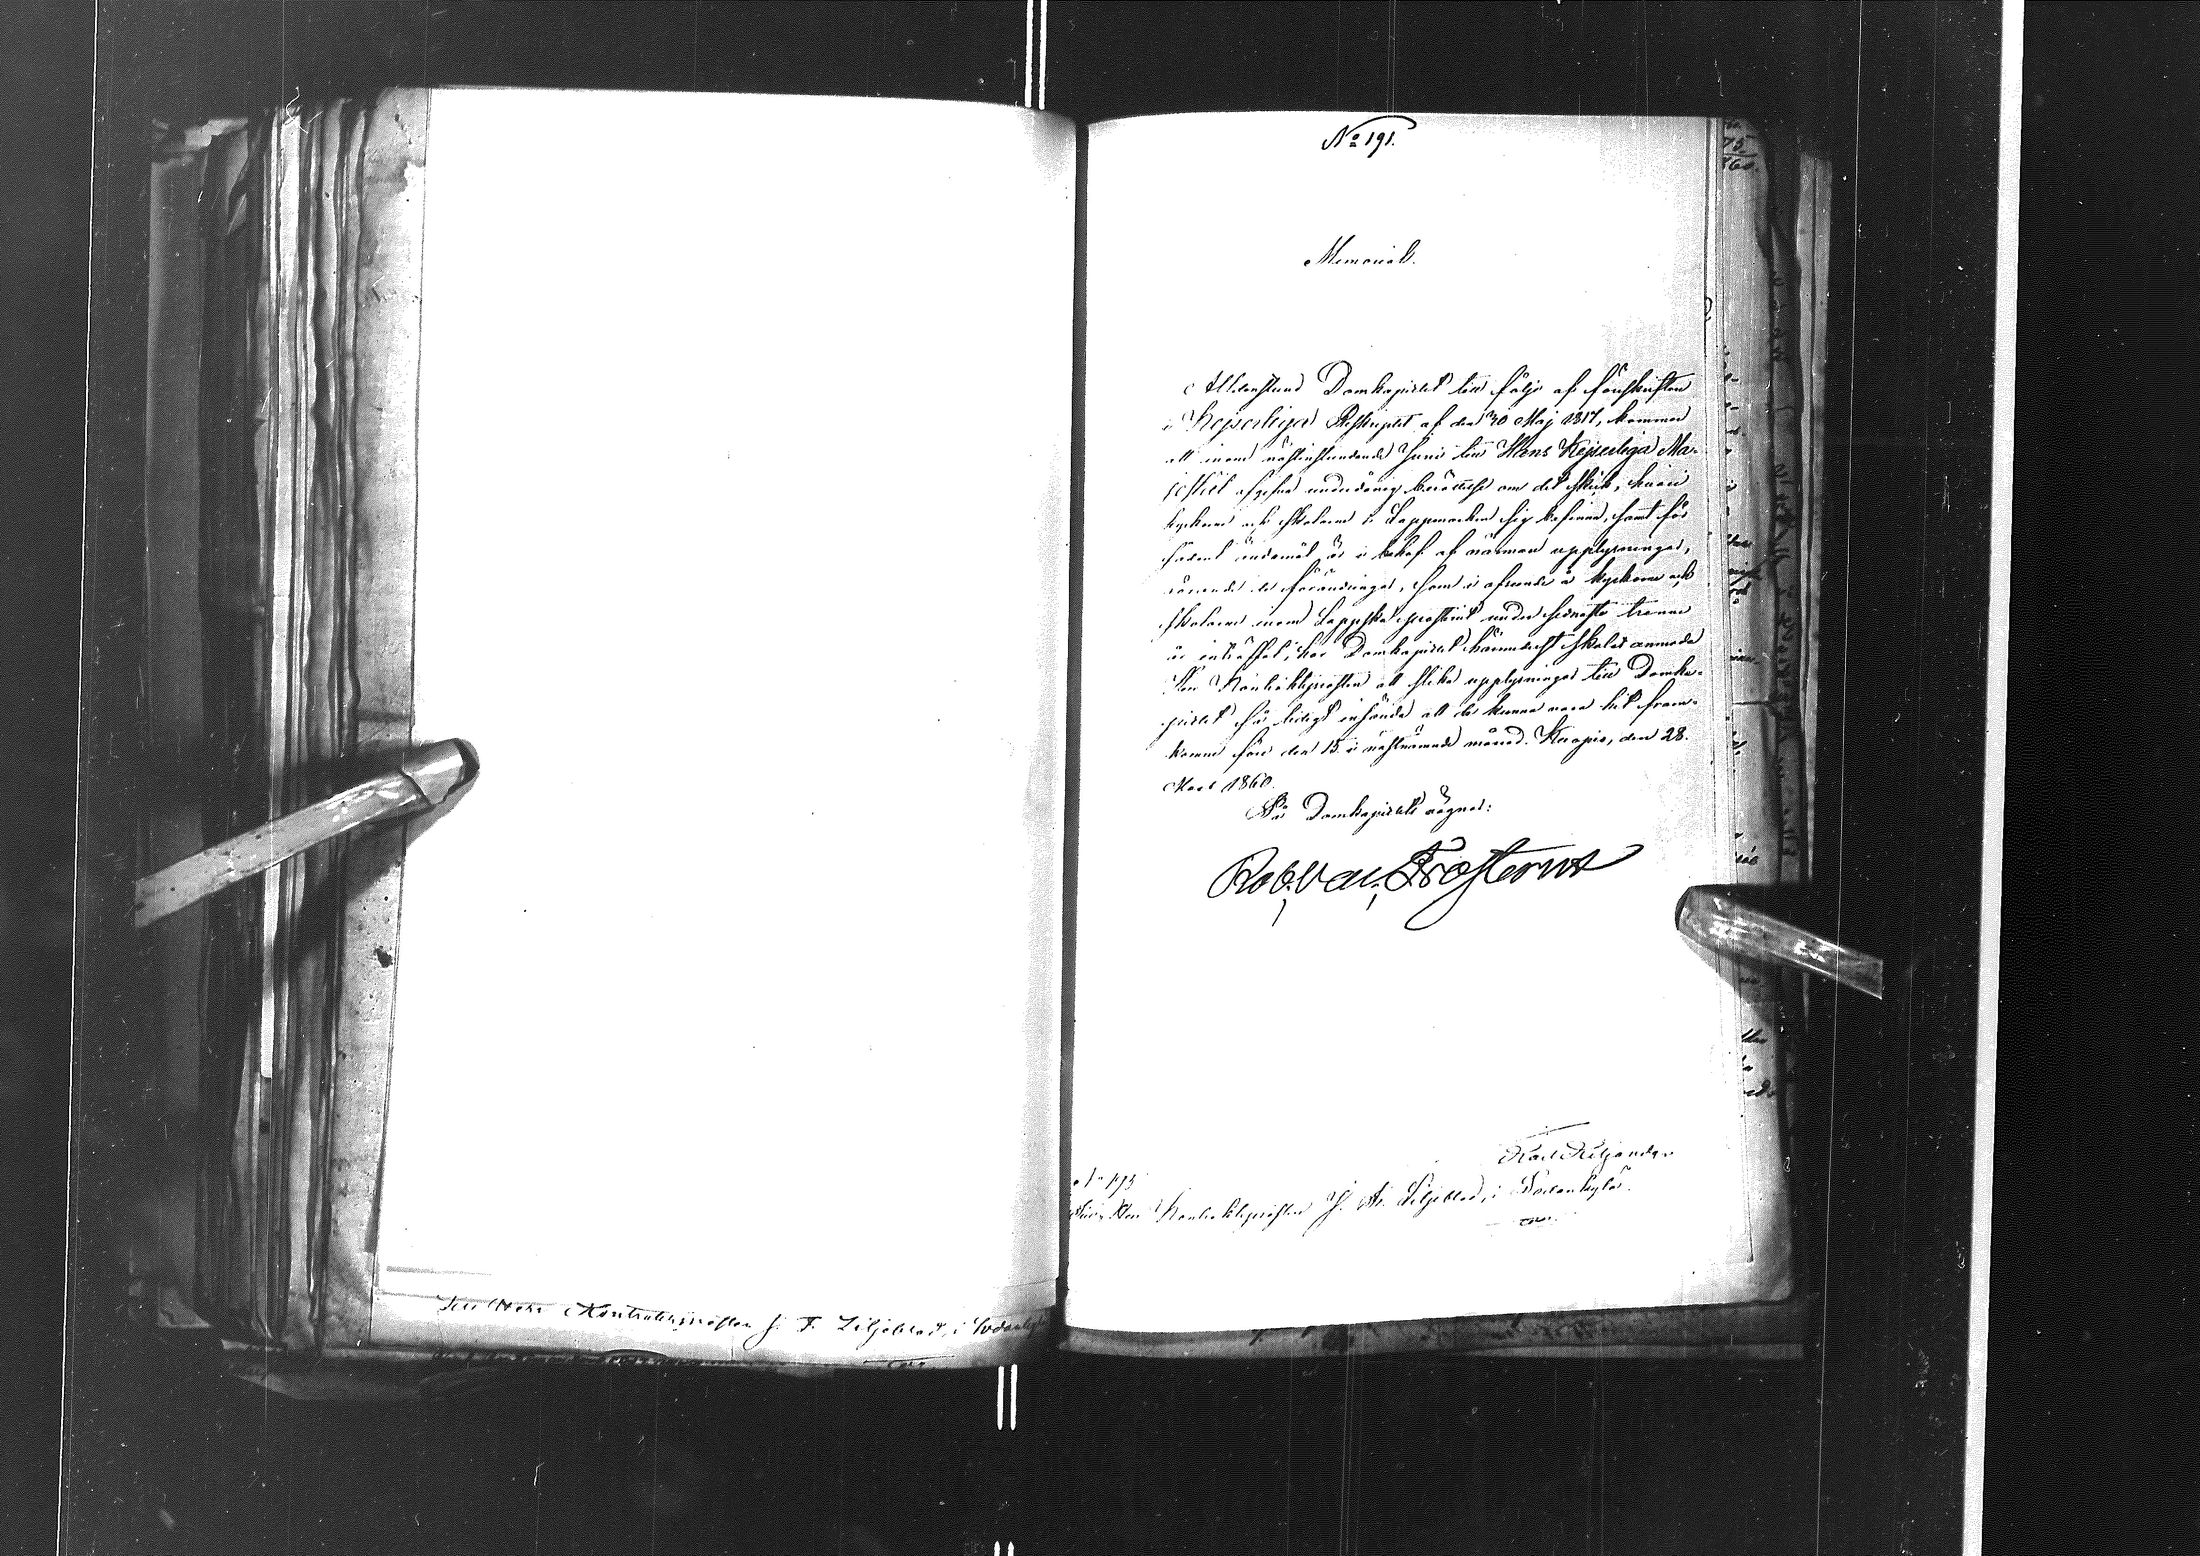 Till Herr Kontraktsprosten J. F. Liljeblad, i Sodankylä
No 191.
Memorial.
Alldenstund Domkapitlet till följe af föreskriften
i Kejserliga Reskriptet af den 30 Maj 1817, kommer
att inom nästinstundande Juni till Hans Kejserliga Ma-
jestät afgifva underdånig berättelse om det skick, hvari
kyrkorna och skolorna i Lappmarken sig befinna, samt för
sådant ändamål är i behof af närmare upplysningar,
rörande de förändringar, som i afseende å kyrkorna och
skolorna inom Lappska prosteriet under sednaste trenne
år inträffat; har Domkapitlet härmedelst skolat anmoda
Herr Kontraktsprosten att slika upplysningar till Domka-
pitlet så tidigt insända att de kunna vara hit fram-
komna före den 15 i nästnämnde månad. Kuopio, den 28.
Mars 1860.
På Domkapitlets vägnar:
Rob. Val. Frosterus
Karl Kiljander
No 193
Till Herr Kontraktsprosten J. Fr. Liljeblad, i Sodankylä.